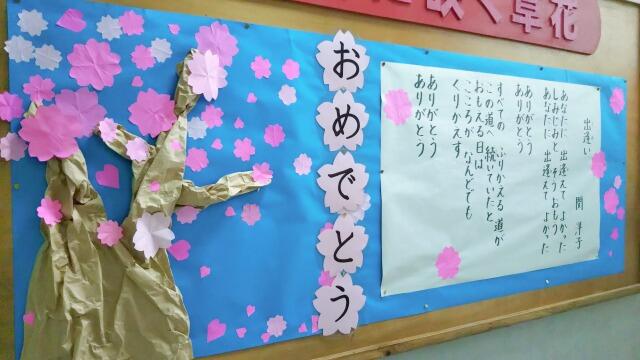 咲く草花
おめでとう
出逢い
関 洋子
あなたに 出逢えて よかった
しみじみと そうおもう
あなたに 出逢えて よかった
ありがとう
ありがとう
すべての ふりかえる道が
この道へ 続いていたと
おもえる日は
こころが なんどでも
くりかえす
ありがとう
ありがとう